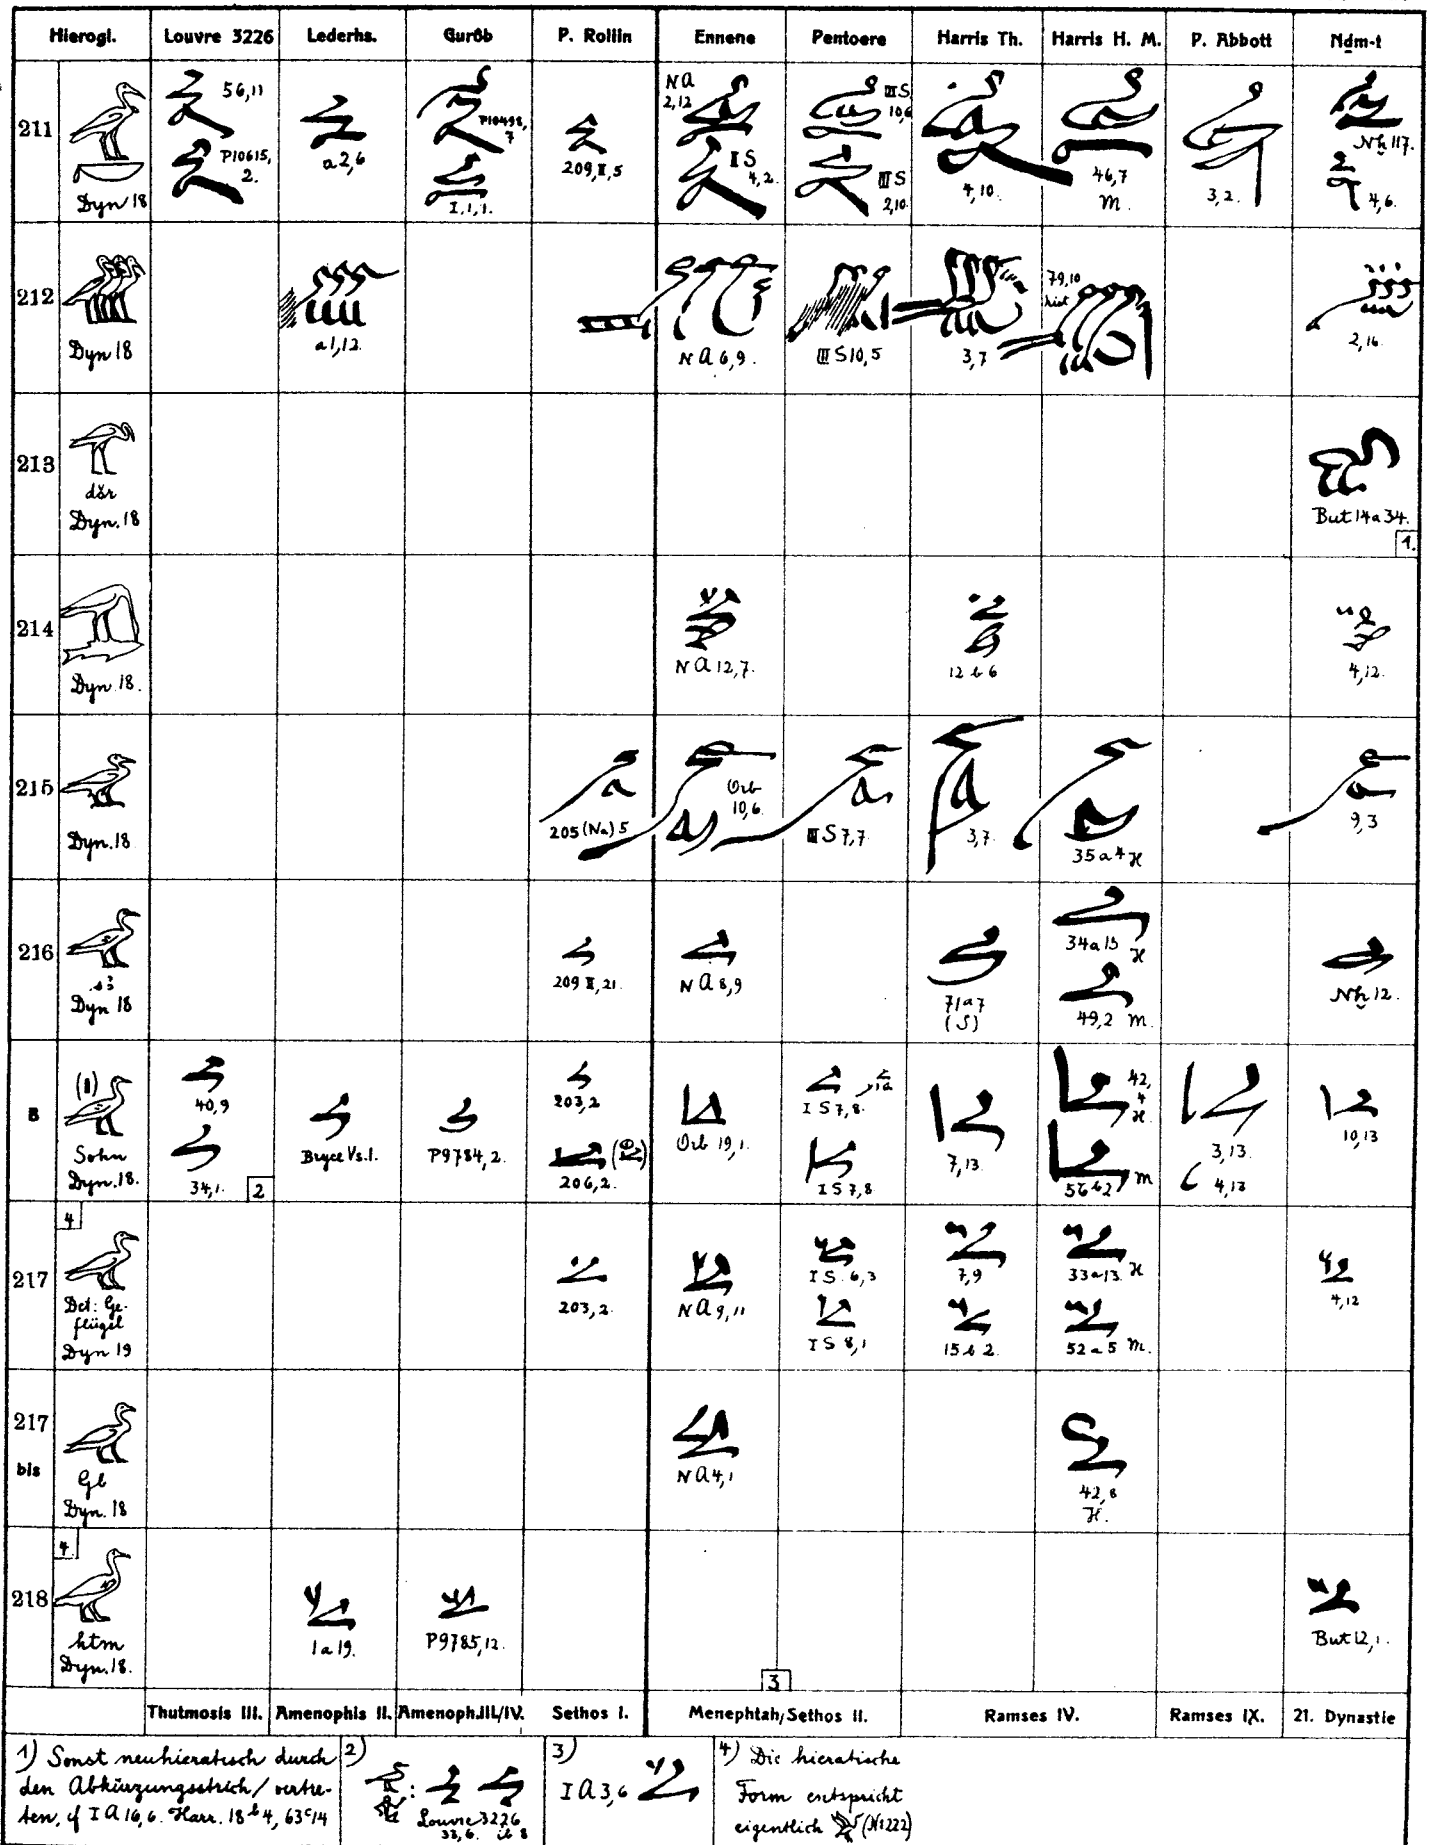 Hierogl. Louvre 3226 Lederhs. Gurôb P. Rollin Ennene Pentoere Harris Th. Harris H. M. P. Abbott Nḏm-t
211
Dyn 18
56,11
P10615, 2.
a2,6
P10498, 7
I,1,1.
209,II,5
NA 2,12
IS 4,2.
III S 10,6
III S 2,10.
4,10.
46,7 M.
3,2.
Nḫ 117.
4,6.
212
Dyn 18
a1,12.
NA 6,9.
III S 10,5
3,7
79,10
2,16.
213
Dyn. 18
But 14a 34.
1.
214
Dyn. 18.
NA 12,7.
12 b 6
4,12.
215
Dyn. 18
205 (Na) 5
Orb 10,6.
III S 7,7.
3,7.
35 a 4 H
9,3
216
s3
Dyn 18
209 II,21.
NA 8,9
71a7 (S)
34a 13 H
49,2 M.
Nḫ 12.
B
Sohn
Dyn. 18.
40,9
34,1.
2
Bryce Vs.1.
P9784,2.
203,2
206,2.
Orb 19,1.
I S 7,8.
I S 7,8
7,13.
42, 4 H.
56 b 2 M
3,13.
4,13
10,13
4
217
Det: Ge-
flügel
Dyn 19
203,2.
NA 9,11
I S. 6,3
I S 8,1
7,9
15 b 2.
33 a 13. H
52 a 5 M.
4,12
217
bis
Gb
Dyn. 18
NA 4,1
42,8
H.
4.
218
htm
Dyn. 18.
1 a 19.
P9785,12.
But 12,1.
3
Thutmosis III. Amenophis II. Amenoph.III./IV. Sethos I. Menephtah/Sethos II. Ramses IV. Ramses IX. 21. Dynastie
1) Sonst neuhieratisch durch
den Abkürzungsstrich / vertre-
ten, cf I A 16,6. Harr. 18 b 4, 63 c 14
2)
Louvre 3226
33,6. ib 8
3)
I A 3,6
4) Die hieratische
Form entspricht
eigentlich (N 222)